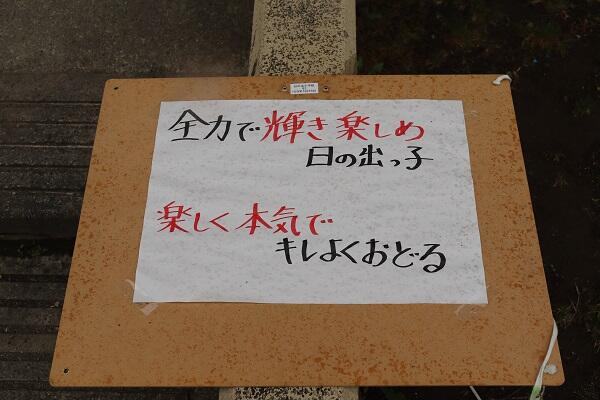 全力で輝き楽しめ
日の出っ子
楽しく本気で
キレよくおどる